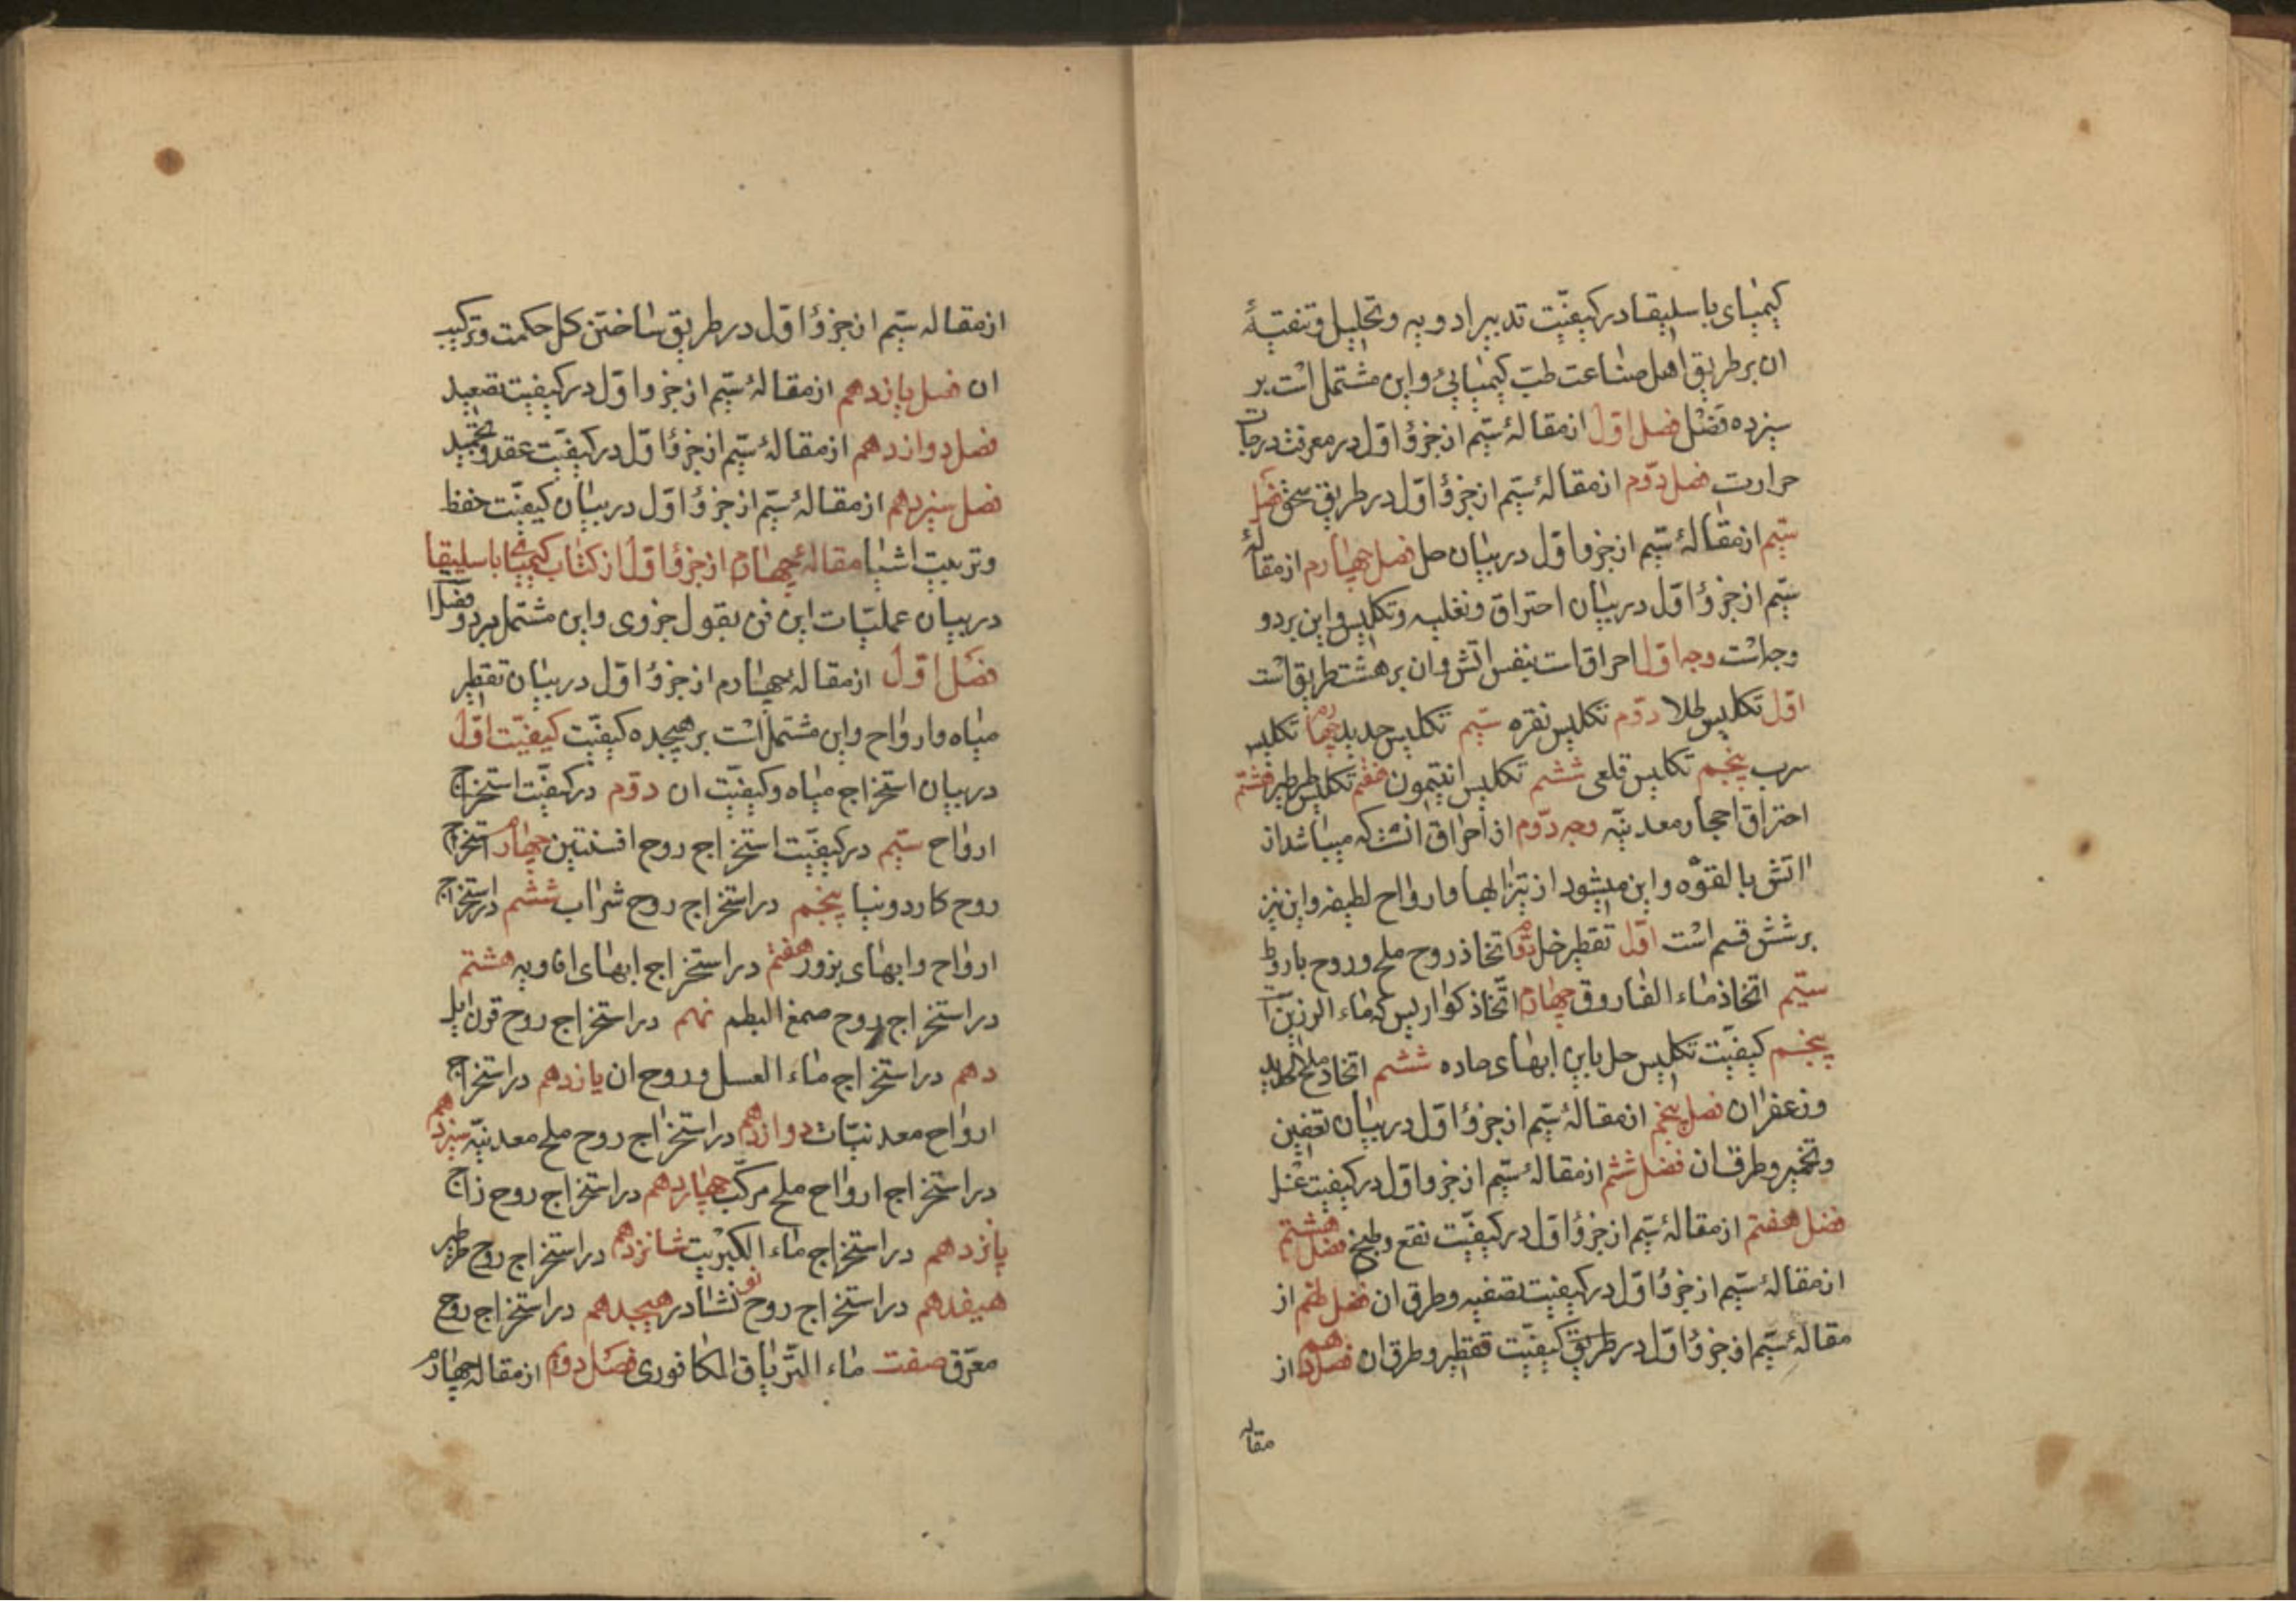 کیمیای باسلیقا در کیفیّت تدبیر ادویه و تحلیل و تنقیهٔ
ان بر طریق اهل صناعت طبّ کیمیائی و این مشتمل است بر
سیزده فصل فصل اوّل از مقالهٔ سیّم از جزؤ اوّل در معرفت درجات
حرارت فصل دوّم از مقالهٔ سیّم از جزؤ اوّل در طریق سحق فصل
سیّم از مقالهٔ سیّم از جزو اوّل در بیان حل فصل چهارم از مقالهٔ
سیّم از جزؤ اوّل در بیان احتراق و تغلیه و تکلیس و این بر دو
وجه است وجه اوّل احراق است بنفس اتش و ان بر هشت طریق است
اوّل تکلیس طلا دوّم تکلیس نقره سیّم تکلیس حدید چهارم تکلیس
سرب پنجم تکلیس قلعی ششم تکلیس انتیمون هفتم تکلیس طرطیر هشتم
احتراق احجار معدنیّه وجه دوّم از احراق انست که میباشد از
اتش بالقوّه و این میشود از تیزابها و ارواح لطیفه و این نیز
بر شش قسم است اوّل تقطیر خل دوّم اتخاذ روح ملح و روح باروط
سیّم اتخاذ ماء الفاروق چهارم اتّخاذ کواریس که ماء الرزین
پنجم کیفیّت تکلیس حل باین ابهای حاده ششم اتخاذ ملح الحدید
و زعفران فصل پنجم از مقالهٔ سیّم از جزؤ اوّل در بیان تعفین
و تخمیر و طرق ان فصل ششم از مقالهٔ سیّم از جزو اوّل در کیفیت غسل
فصل هفتم از مقالهٔ سیّم از جزؤ اوّل در کیفیّت نقع و طبخ فصل هشتم
از مقالهٔ سیّم از جزؤ اوّل در کیفیّت تصفیه و طرق ان فصل نهم از
مقالهٔ سیّم از جزؤ اوّل در طریق کیفیّت تقطیر و طرق ان فصل دهم از
مقاله
از مقاله سیّم از جزؤ اوّل در طریق ساختن کل حکمت و ترکیب
ان فصل یازدهم از مقالهٔ سیّم از جزو اوّل در کیفیت تصعید
فصل دوازدهم از مقالهٔ سیّم از جزؤ اوّل در کیفیّت عقد و تجمید
فصل سیزدهم از مقالهٔ سیّم از جزؤ اوّل در بیان کیفیّت حفظ
و تربیت اشیا مقالهٔ چهارم از جزؤ اوّل از کتاب کیمیا باسلیقا
در بیان عملیّات این فن بقول جزوی و این مشتمل بر دو فصل
فصل اوّل از مقالهٔ چهارم از جزؤ اوّل در بیان تقطیر
میاه و ارواح و این مشتمل است بر هیجده کیفیّت کیفیّت اوّل
در بیان استخراج میاه و کیفیّت ان دوّم در کیفیّت استخراج
ارواح سیّم در کیفیّت استخراج روح افسنتین چهارم استخراج
روح کاردونیا پنجم در استخراج روح شراب ششم در استخراج
ارواح و ابهای بزور هفتم در استخراج ابهای افاویه هشتم
در استخراج روح صمغ البطم نهم در استخراج روح قرن ایل
دهم در استخراج ماء العسل و روح ان یازدهم در استخراج
ارواح معدنیّات دوازدهم در استخراج روح ملح معدنیّه سیزدهم
در استخراج ارواح ملح مرکّب چهاردهم در استخراج روح زاج
پانزدهم در استخراج ماء الکبریت شانزدهم در استخراج روح طرطیر
هیفدهم در استخراج روح نوشادر هیجدهم در استخراج روح
معرّق صفت ماء التّریاق الکافوری فصل دوّم از مقاله چهارم